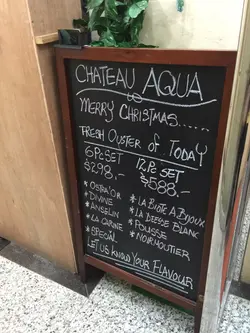 CHATEAU AQUA
MERRY CHRISTMAS......
FRESH OYSTER of TODAY
6 Pc SET
$298,-
12 Pc SET
$588,-
* OSTRA'OR
* DIVINE
* ANSELIN
* LA GARNE
* SPECIAL
* LA BUITE A BIJOUX
* LA DIESSE BLANC
* POUSSE
* NOIRMOUTIER
LET US KNOW YOUR FLAVOUR